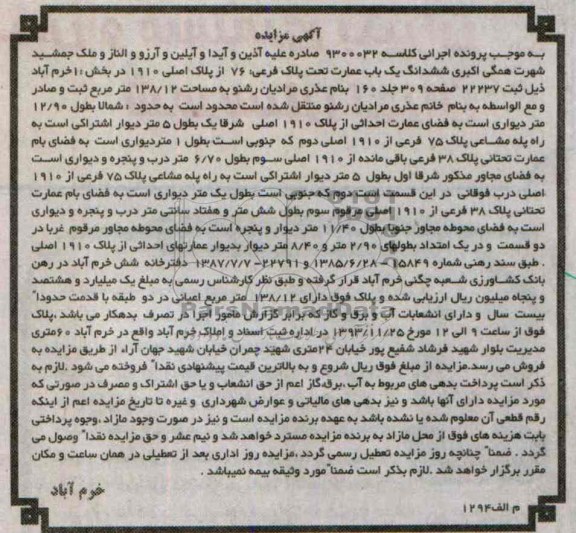 آگهی مزایده
به موجب پرونده اجرائی کلاسه ۹۳۰۰۰۳۲ صادره علیه آذین و آیدا و آیلین و آرزو و الناز و ملک جمشید
شهرت همگی اکبری ششدانگ یک باب عمارت تحت پلاک فرعی: ۷۶ از پلاک اصلی ۱۹۱۰ در بخش :۱ خرم آباد
ذیل ثبت ۲۲۲۳۷ صفحه ۳۰۹ جلد ۱۶۰ بنام عذری مرادیان رشنو به مساحت ۱۳۸/۱۲ متر مربع ثبت و صادر
و مع الواسطه به بنام خانم عذری مرادیان رشنو منتقل شده است محدود است به حدود : شمالا بطول ۱۲/۹۰
متر دیواری است به فضای عمارت احداثی از پلاک ۱۹۱۰ اصلی شرقا یک بطول ۵ متر دیوار اشتراکی است به
راه پله مشاعی پلاک ۷۵ فرعی از ۱۹۱۰ اصلی دوم که جنوبی است بطول ۱ متردیواری است به فضای بام
عمارت تحتانی پلاک ۳۸ فرعی باقی مانده از ۱۹۱۰ اصلی سوم بطول ۶/۷۰ متر درب و پنجره و دیواری است
به فضای مجاور مذکور شرقا اول بطول ۵ متر دیوار اشتراکی است به راه پله مشاعی پلاک ۷۵ فرعی از ۱۹۱۰
اصلی درب فوقانی در این قسمت است دوم که جنوبی است بطول یک متر دیواری است به فضای بام عمارت
تحتانی پلاک ۳۸ فرعی از ۱۹۱۰ اصلی مرقوم سوم بطول شش متر و هفتاد سانتی متر درب و پنجره و دیواری
است به فضای محوطه مجاور جنوبا بطول ۱۱/۴۰ متر دیوار و پنجره است به فضای محوطه مجاور مرقوم غربا در
دو قسمت و در یک امتداد بطولهای ۲/۹۰ متر و ۸/۴۰ متر دیوار بدیوار عمارتهای احداثی از پلاک ۱۹۱۰ اصلی
. طبق سند رهنی شماره ۱۵۸۴۹ – ۱۳۸۵/۶/۲۸ و ۲۲۷۹۱– ۱۳۸۷/۷/۷ دفترخانه شش خرم آباد در رهن
بانک کشاورزی شعبه چگنی خرم آباد قرار گرفته و طبق نظر کارشناس رسمی به مبلغ یک میلیارد و هشتصد
و پنجاه میلیون ریال ارزیابی شده و پلاک فوق دارای ۱۳۸/۱۲ متر مربع اعیانی در دو طبقه با قدمت حدودا"
بیست سال و دارای انشعابات آب و برق و گاز که برابر گزارش مامور اجرا در تصرف بدهکار می باشد ،پلاک
فوق از ساعت ۹ الی ۱۲ مورخ ۱۳۹۳/۱۱/۲۵ در اداره ثبت اسناد و املاک خرم آباد واقع در خرم آباد ۶۰متری
مدیریت بلوار شهید فرشاد شفیع پور خیابان ۲۴متری شهید چمران خیابان شهید جهان آراء از طریق مزایده به
فروش می رسد.مزایده از مبلغ فوق ریال شروع و به بالاترین قیمت پیشنهادی نقدا" فروخته می شود .لازم به
ذکر است پرداخت بدهی های مربوط به آب ،برق،گاز اعم از حق انشعاب و یا حق اشتراک و مصرف در صورتی که
مورد مزایده دارای آنها باشد و نیز بدهی های مالیاتی و عوارض شهرداری و غیره تا تاریخ مزایده اعم از اینکه
رقم قطعی آن معلوم شده یا نشده باشد به عهده برنده مزایده است و نیز در صورت وجود مازاد ،وجوه پرداختی
بابت هزینه های فوق از محل مازاد به برنده مزایده مسترد خواهد شد و نیم عشر و حق مزایده نقدا" وصول می
گردد . ضمنا" چنانچه روز مزایده تعطیل رسمی گردد ،مزایده روز اداری بعد از تعطیلی در همان ساعت و مکان
مقرر برگزار خواهد شد .لازم بذکر است ضمنا"مورد وثیقه بیمه نمیباشد .
خرم آباد
م الف۱۲۹۴